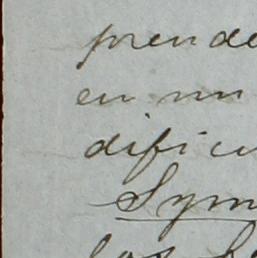 prende
en un
dificu
Sym
los